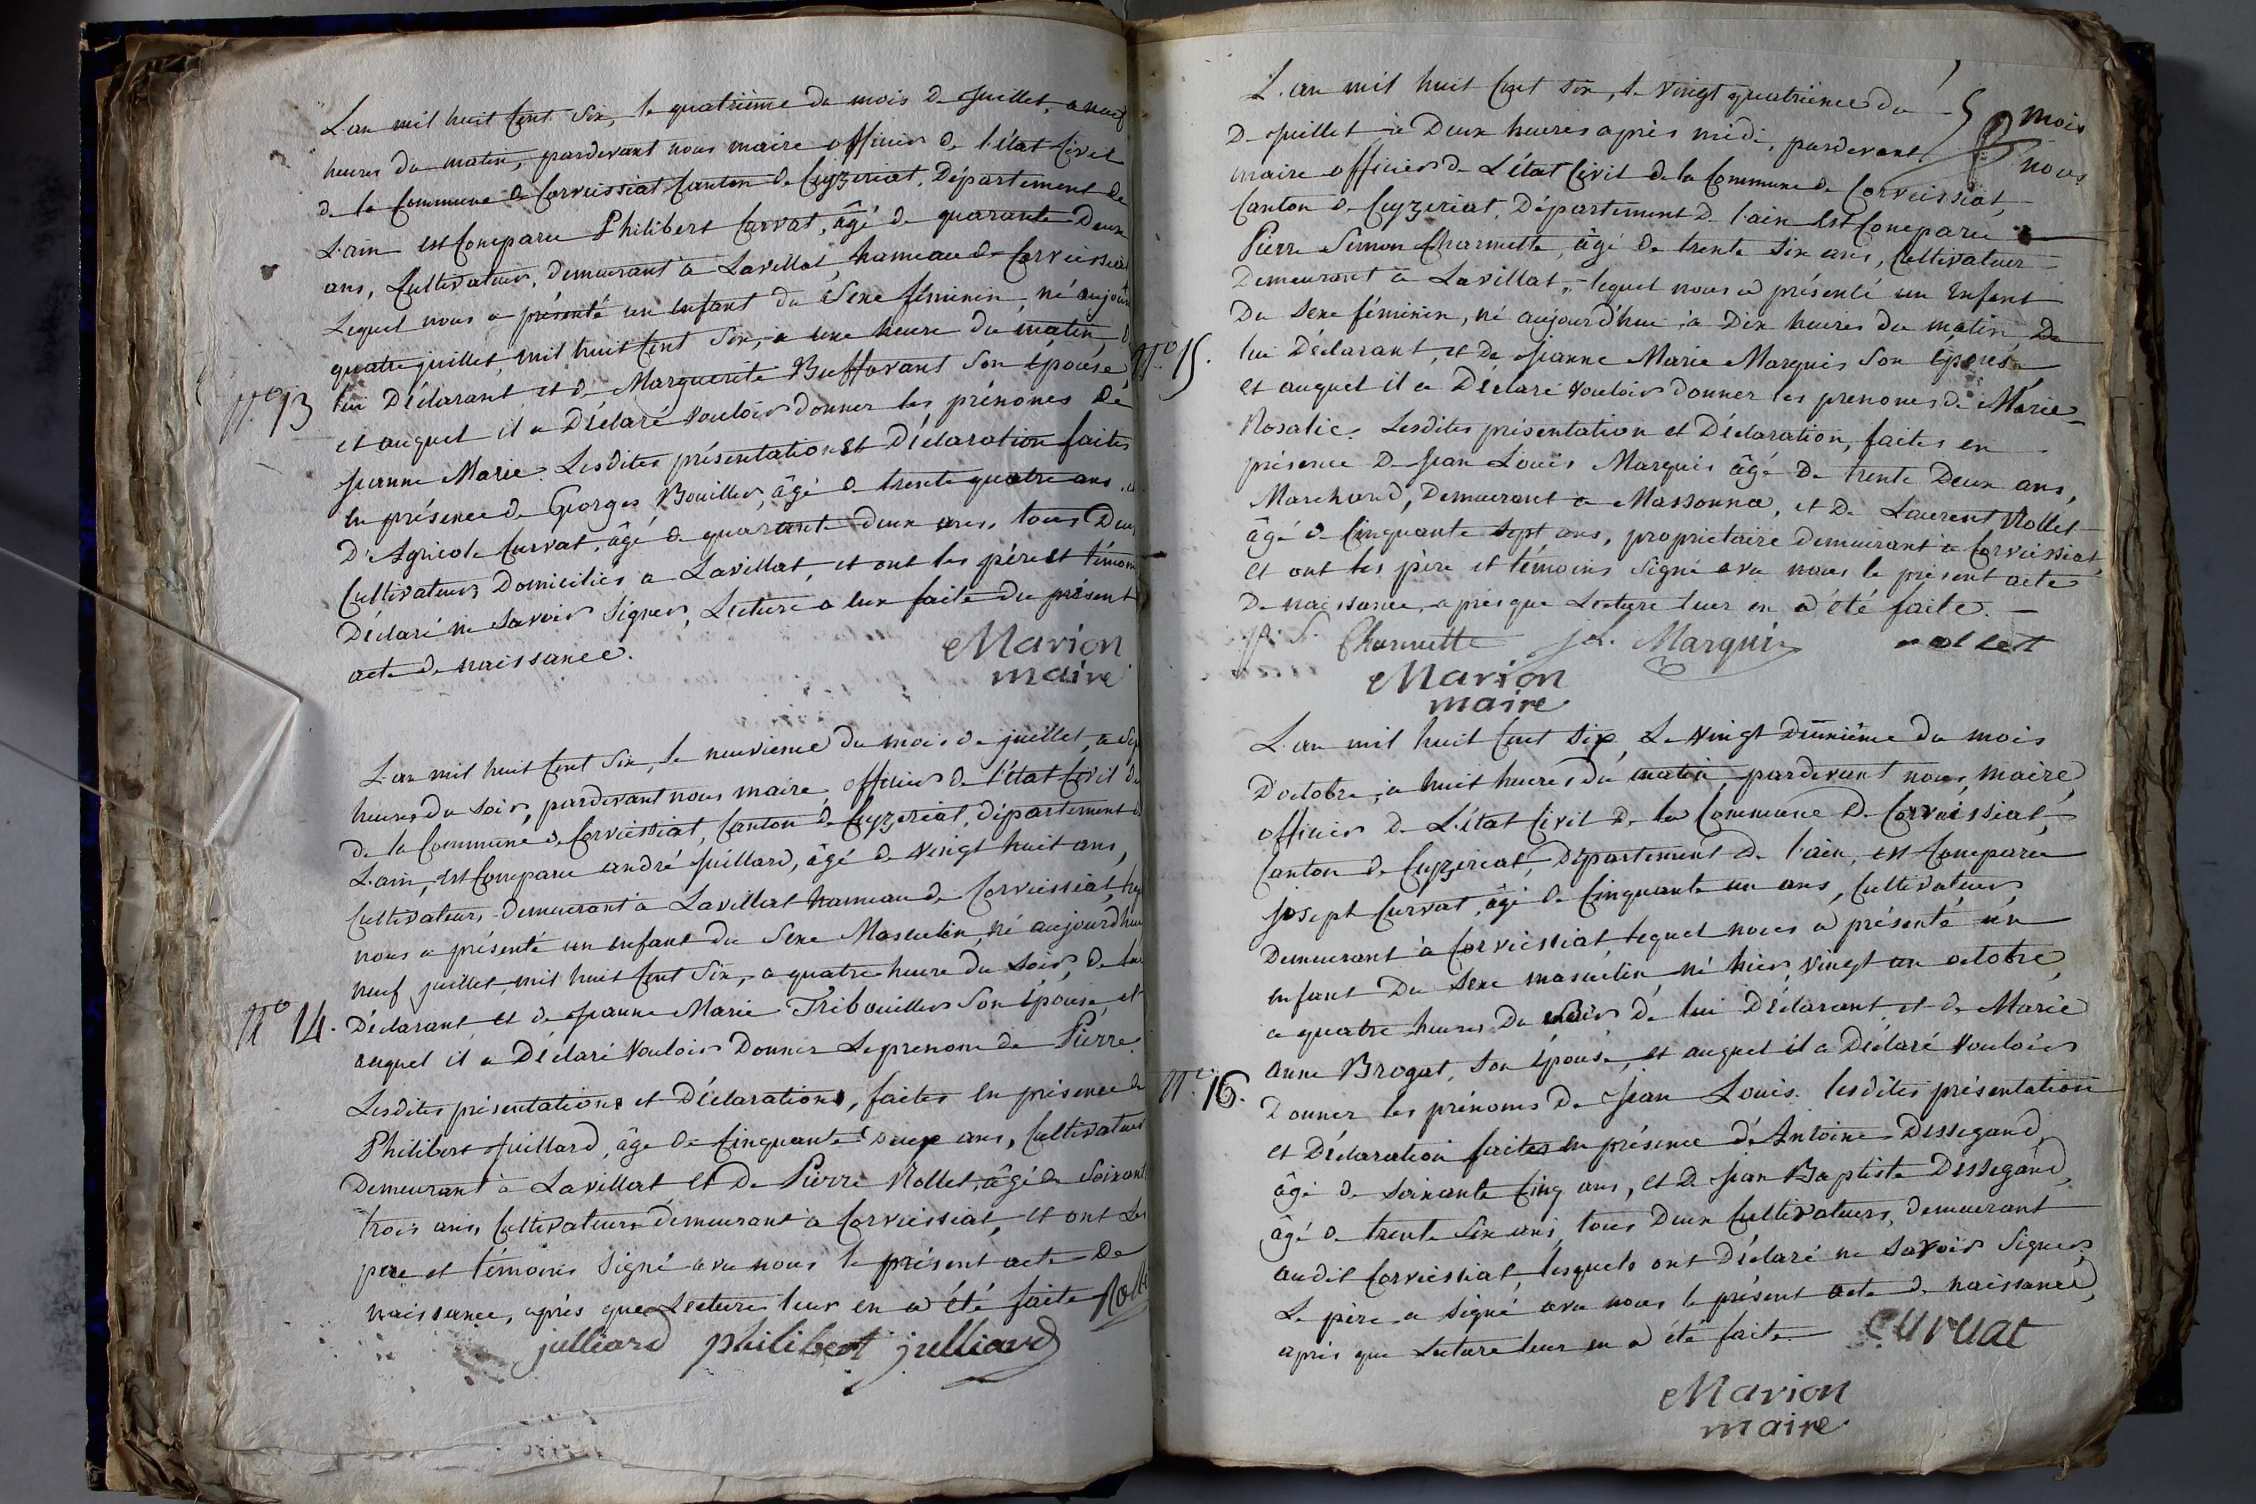 L'an mil huit Cent Six, le quatrième du mois de Juillet, a neuf
heures du matin, pardevant nous maire officier de l'état Civil
de la Commune de Corveissiat Canton de Ceyzeriat, Département de
L'ain est Comparu Philibert Curvat, âgé de quarante Deux
ans, Cultivateur, demeurant à Lavillat, hameau de Corveissiat
Lequel nous a présenté un enfant du Sexe féminin, né aujour
quatre juillet, mil huit Cent Six, a une heure du matin, d
N.o 13
lui Déclarant et de Marguerite Buffavant Son épouse,
et auquel il a Déclaré vouloir donner les prénoms de
Jeanne Marie. Lesdites présentation et Déclaration faites
en présence de Georges Bouiller, âgé de trente quatre ans, et
D'Agricole Curvat, âgé de quarante deux ans, tous Deux
Cultivateurs Domiciliés a Lavillat, et ont les père et témoins
Déclaré ne Savoir Signer, Lecture a eux faite du présent
acte de naissance.
Marion
maire
L'an mil huit Cent Six, le neuvieme du mois de juillet, a Sep
heures du Soir, pardevant nous maire, officier de l'état Civil de
de la Commune de Corveissiat, Canton de Ceyzeriat, département de
L'ain, est Comparu andré Juillard, âgé de vingt huit ans,
Cultivateur, demeurant a Lavillat hameau de Corveissiat, leq
nous a présenté un enfant du Sexe Masculin, né aujourd'hui
neuf juillet, mil huit Cent Six, a quatre heure du Soir, de lui
N.o 14.
Déclarant et de Jeanne Marie Tribouiller Son épouse, et
auquel il a Déclaré Vouloir Donner Le prenom de Pierre.
Lesdites présentations et Déclarations, faites en présence de
Philibert Juillard, âgé de Cinquante Deux ans, Cultivateur
Demeurant à Lavillat et De Pierre Nollet, âgé de Soixante
trois ans, Cultivateur demeurant a Corveissiat, et ont Les
père et témoins Signé avec nous le présent acte De
naissance, après que Lecture leur en a été faite
julliard philibert julliard
L'an mil huit Cent Six, le Vingt quatrieme du mois
De Juillet a Deux heures après midi, pardevant nous
maire officier de L'état Civil de la Commune de Corveissiat,
Canton de Ceyzeriat, Département De l'ain est Comparu
Pierre Simon Charnette, âgé de trente Six ans, Cultivateur
Demeurant a Lavillat, lequel nous a présenté un Enfant
Du Sexe féminin, né aujourd'hui à Dix heures du matin, De
N.o 15.
lui Déclarant, et De Jeanne Marie Marquis Son épouse
et auquel il a Déclaré vouloir donner les prenoms de Marie
Rosalie. Lesdites présentation et Déclaration, faites en
présence De Jean Louis Marquis âgé De trente Deux ans,
Marchand, Demeurant a Massonna, et De Laurent Nollet
âgé de Cinquante Sept ans, propriétaire demeurant a Corveissiat,
et ont les père et témoins Signé avec nous le présent acte
De naissance, apres que Lecture leur en a été faite.
p. S. Charnette j.L. Marquis nollet
Marion
maire
L'an mil huit Cent Six, Le Vingt deuxième du mois
D'octobre, a huit heures du matin, pardevant nous, maire,
officier De L'état Civil De la Commune De Corveissiat,
Canton de Ceyzeriat, Département De l'ain, est Comparu
Joseph Curvat, âgé de Cinquante un ans, Cultivateur
Demeurant à Corveissiat lequel nous a présenté un
enfant Du Sexe masculin, né hier, vingt un octobre,
a quatre heures Du soir de lui Déclarant, et de Marie
anne Brogat, Son épouse, et auquel il a Déclaré vouloir
N.o 16.
Donner les prénoms De Jean Louis. lesdites présentation
et Déclaration faites en présence d'Antoine Dessegand,
âgé de Soixante Cinq ans, et De Jean Baptiste Dessegand,
âgé de trente Six ans, tous Deux Cultivateurs, demeurant
audit Corveissiat, lesquels ont Déclaré ne Savoir Signer,
Le père a signé avec nous le présent acte de naissance,
après que Lecture leur en a été faite. Curvat
Marion
maire